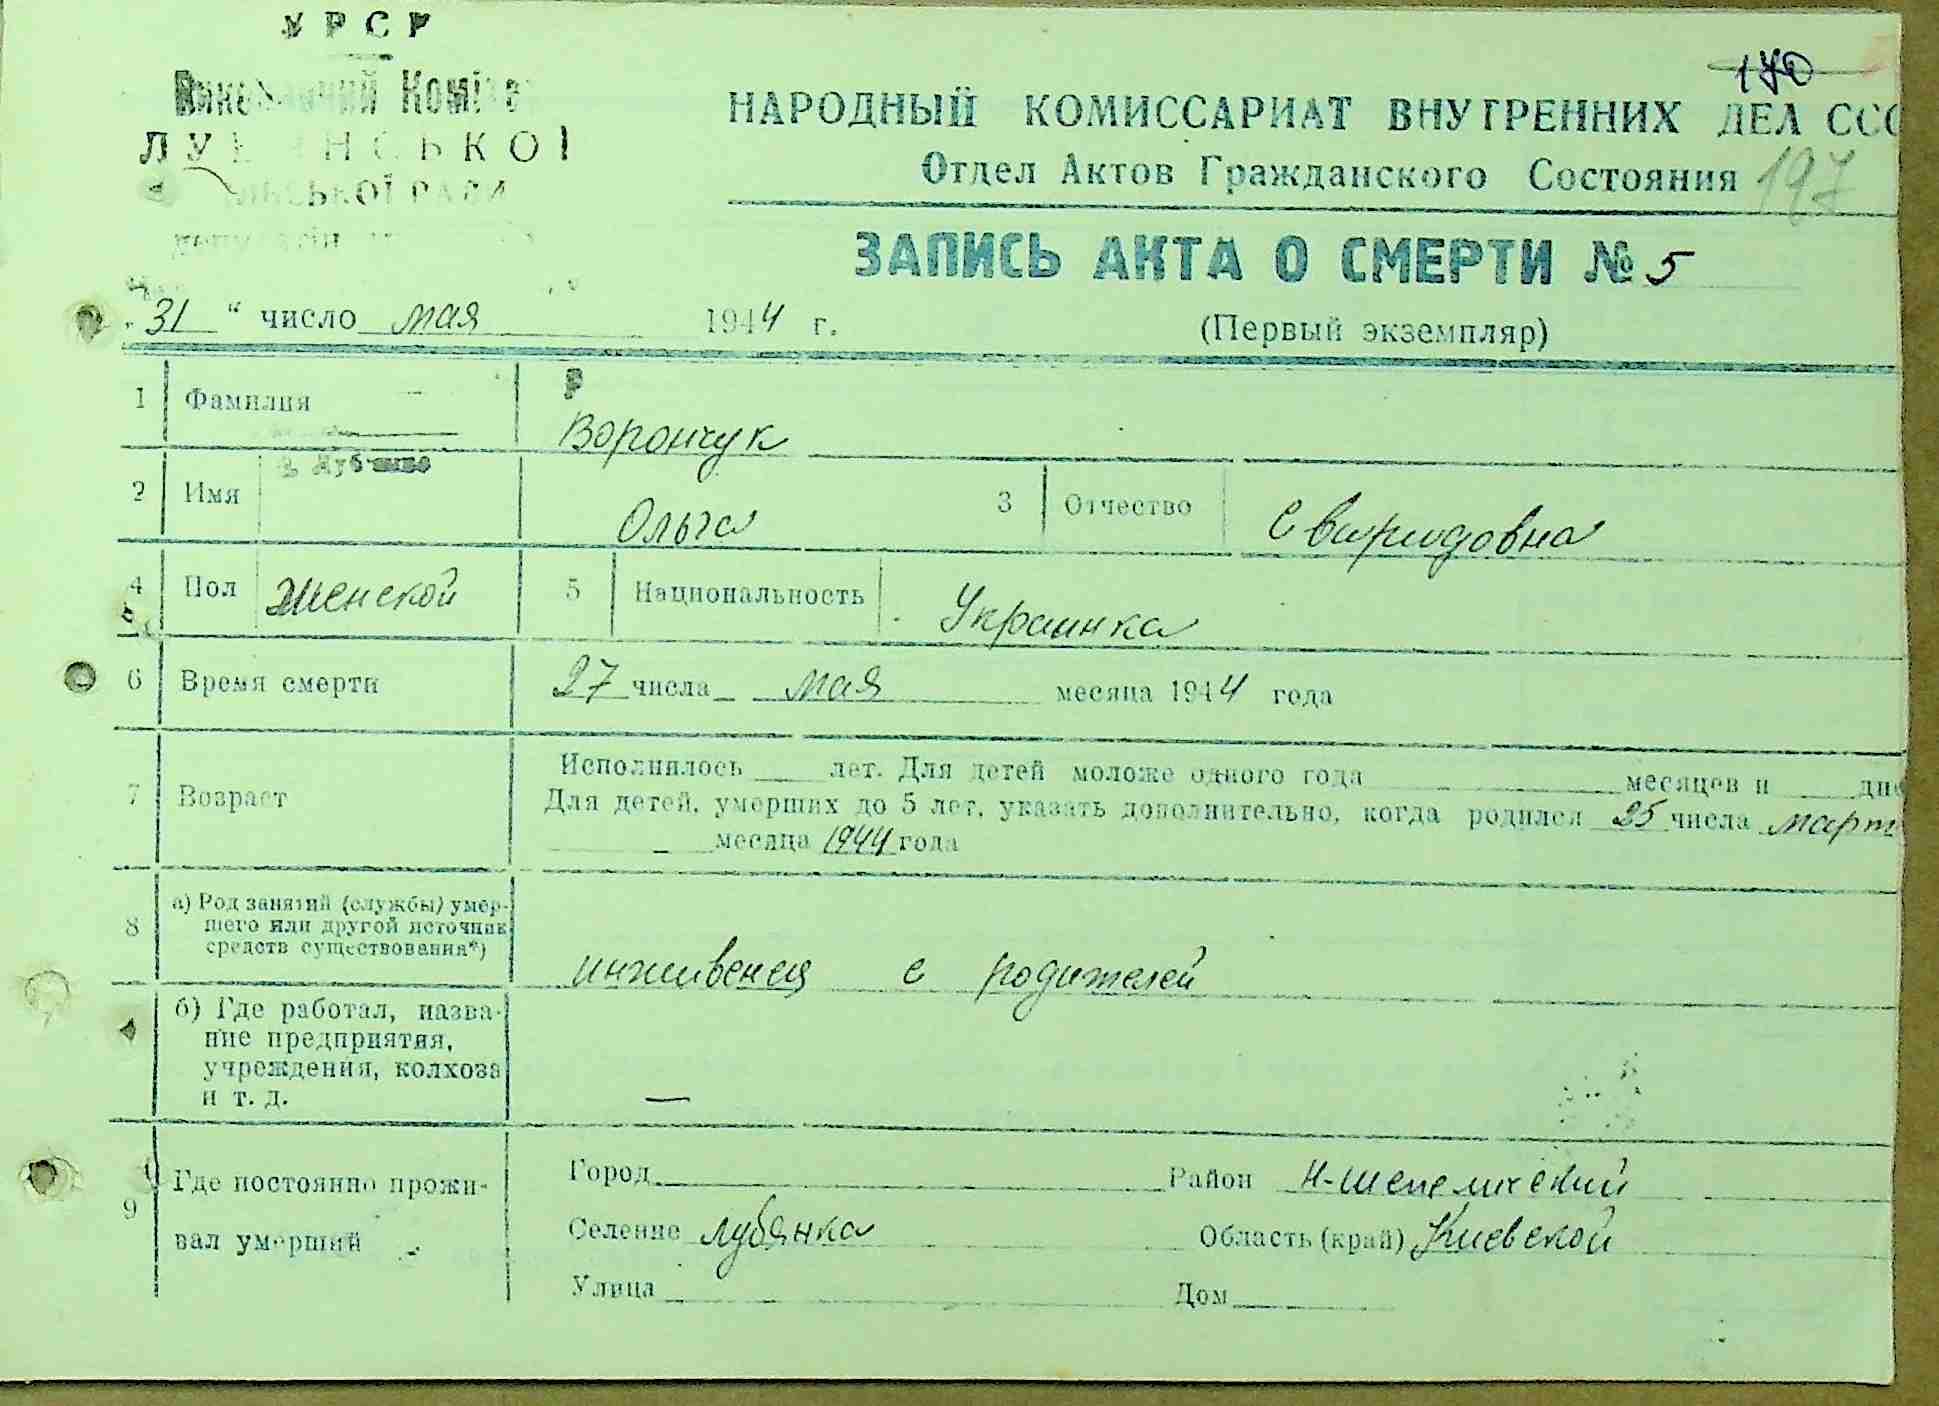 УРСР
Виконавчий Коміт
170
НАРОДНЫЙ КОМИССАРИАТ ВНУТРЕННИХ ДЕЛ ССС
ЛУБЯНСЬКОЇ
Отдел Актов Гражданского Состояния 197
СЬКОЇ РАДИ
ЗАПИСЬ АКТА О СМЕРТИ № 5
"31" число мая 1944 г.
(Первый экземпляр)
1 Фамилия Ворончук
2 Имя Ольга 3 Отчество Свиридовна
4 Пол Женской 5 Национальность Украинка
6 Время смерти 27 числа мая месяца 1944 года
7 Возраст Исполнилось лет. Для детей моложе одного года месяцев и дне
Для детей, умерших до 5 лет, указать дополнительно, когда родился 25 числа март
месяца 1944 года
8 а) Род занятий (службы) умер-
шего или другой источник
средств существования*)
инживения с родителей
б) Где работал, назва-
ние предприятия,
учреждения, колхоза
и т. д. —
9 Где постоянно прожи-
вал умерший
Город Район Н-Шепеличский
Селение Лубянка Область (край) Киевской
Улица Дом